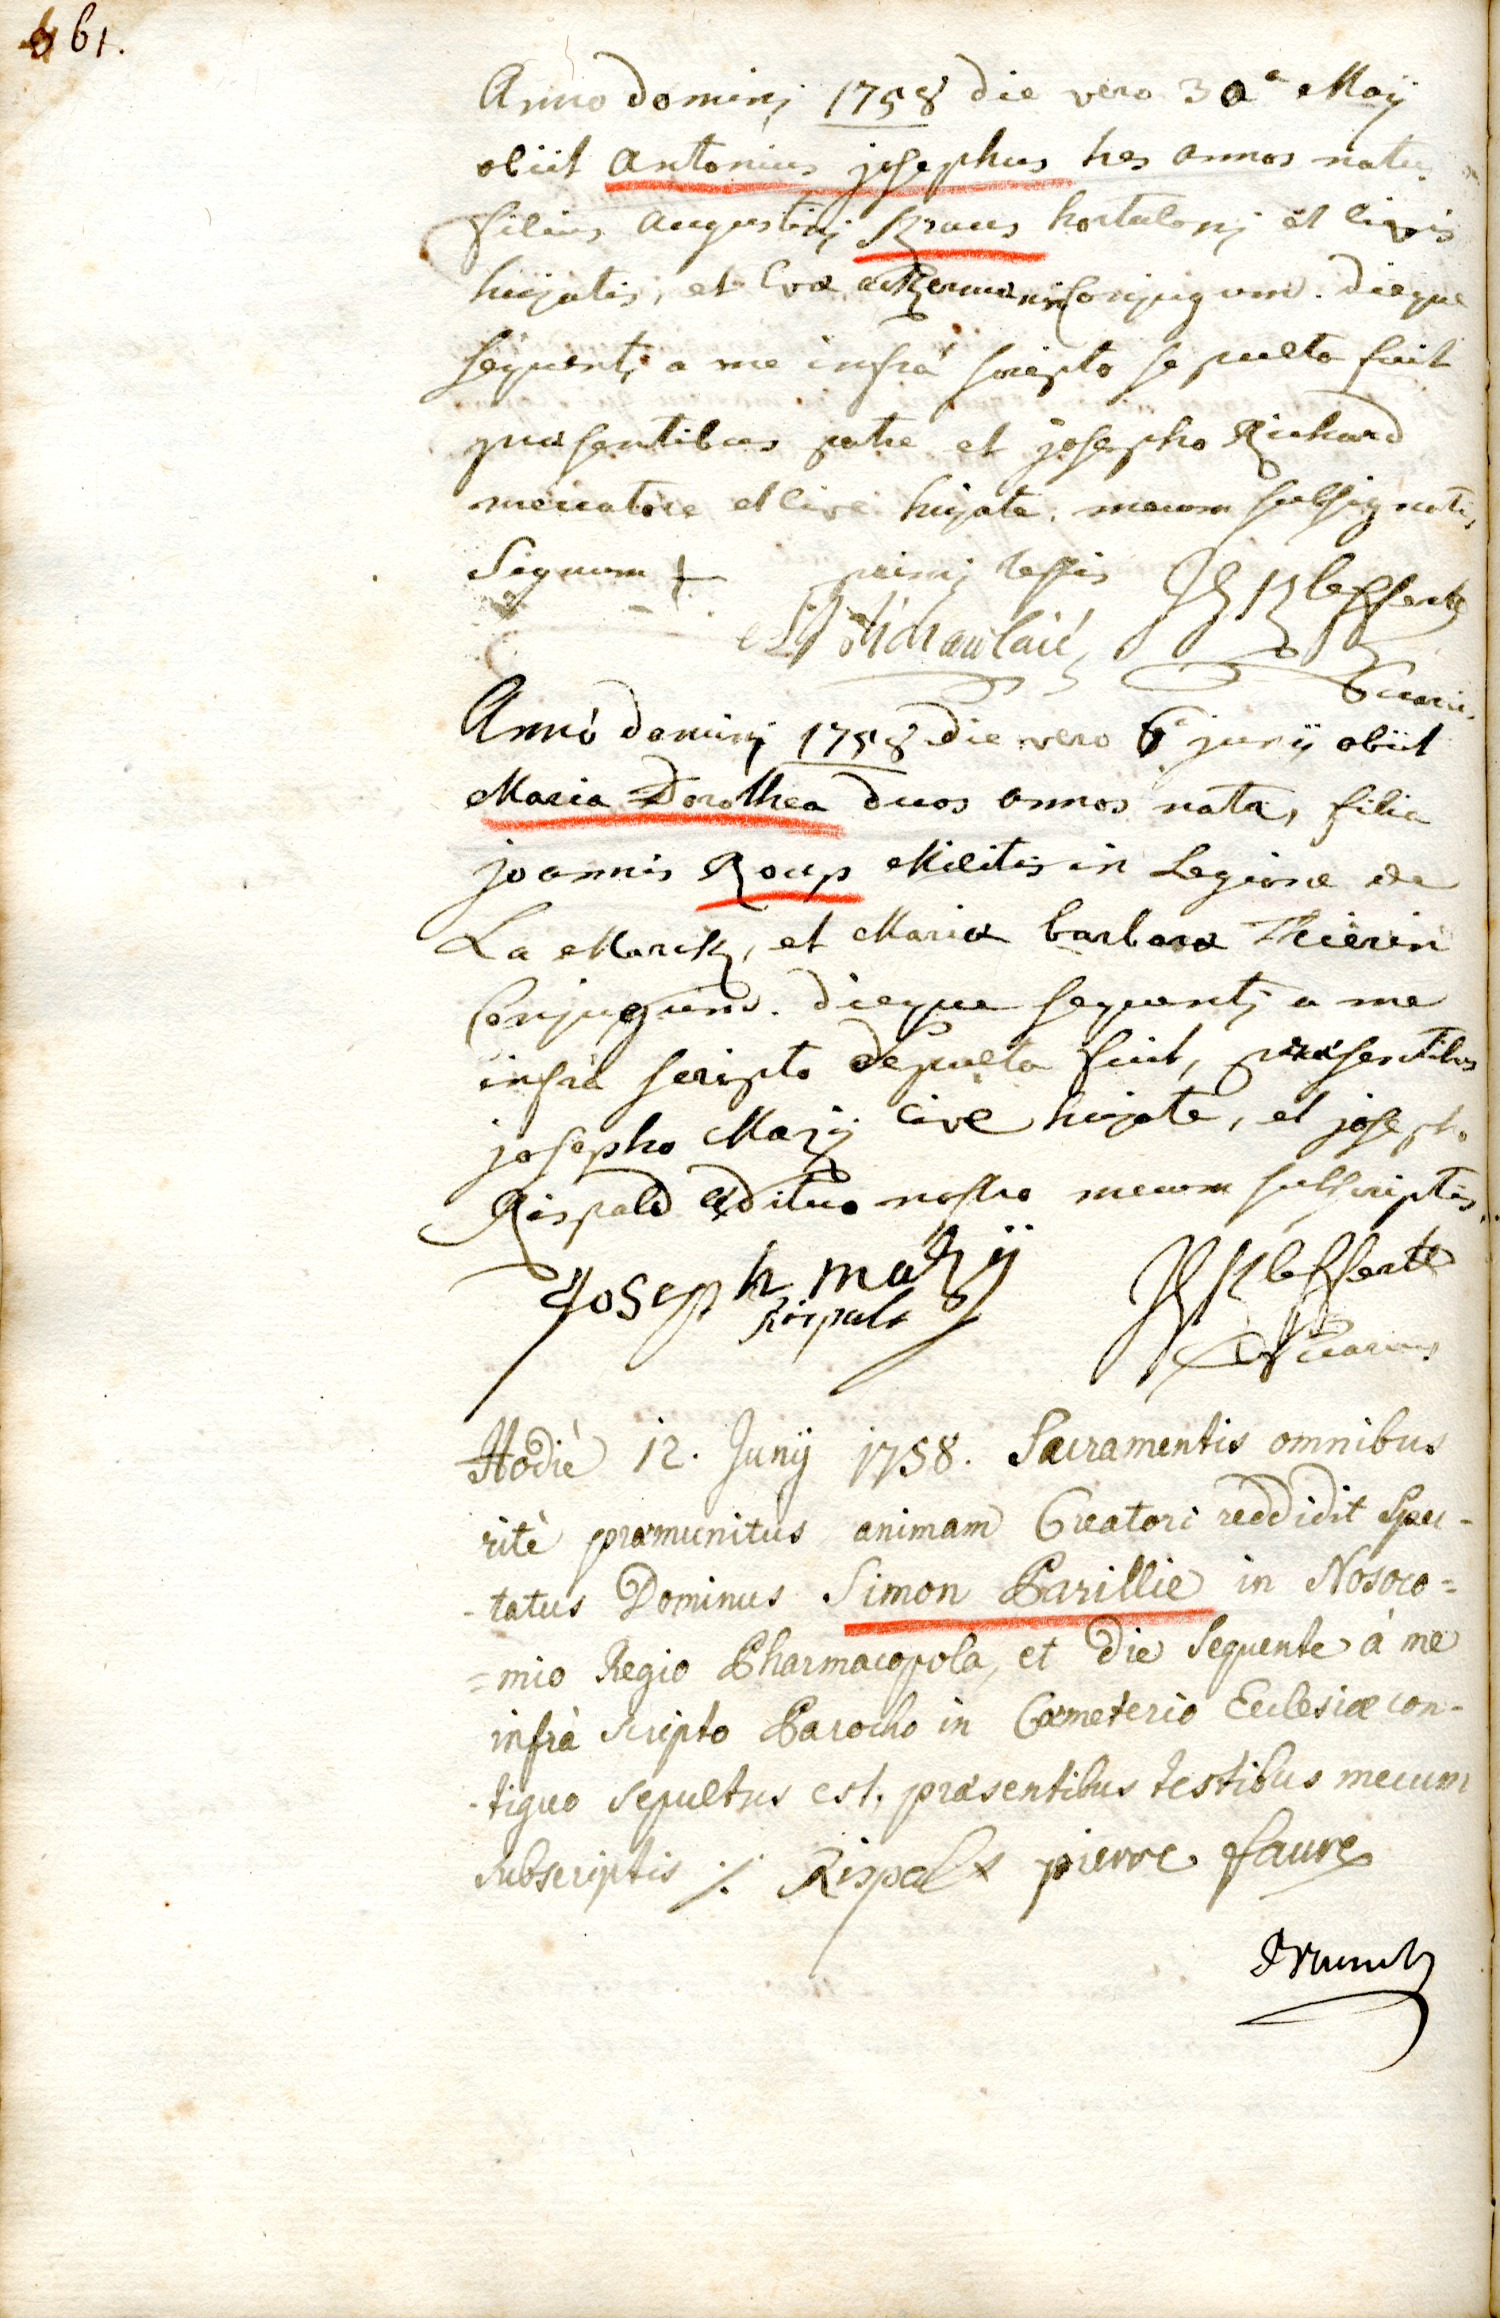 61.
Anno dominj 1758 die vero 30a Maÿ
obiit Antonius josephus tres annos natus
filius Augustinj Kraus hortulanj et civis
hujatis, et Evæ akermanin Conjugum. dieque
sequentj a me infrà scripto sepulta fuit
præsentibus patre et josepho Richard
mercatore et cive hujate. mecum subsignatis
Signum + primj testis J Klefferte
Vicarius
Anno dominj 1758 die vero 6a junÿ obiit
Maria Dorothea duos annos nata, filia
joannis Roup Militis in Legione de
La Marck, et Mariæ barbaræ Thierin
Conjugum. dieque sequentj a me
infrà scripto sepulta fuit, præsentibus
josepho Mazÿ cive hujate, et josepho
Rispald Ædituo nostro mecum subscriptis.
Joseph mazÿ J Klefferte
Rispals Vicarius
Hodiè 12. Junÿ 1758. Sacramentis omnibus
ritè præmunitus animam Creatori reddidit Spec-
-tatus Dominus Simon Parillie in Nosoco=
=mio Regio Pharmacopola, et die Sequente à me
infrà Scripto Parocho in Cæmeterio Ecclesiæ con-
-tiguo Sepultus est, præsentibus testibus mecum
Subscriptis ./. Rispals pierre faure